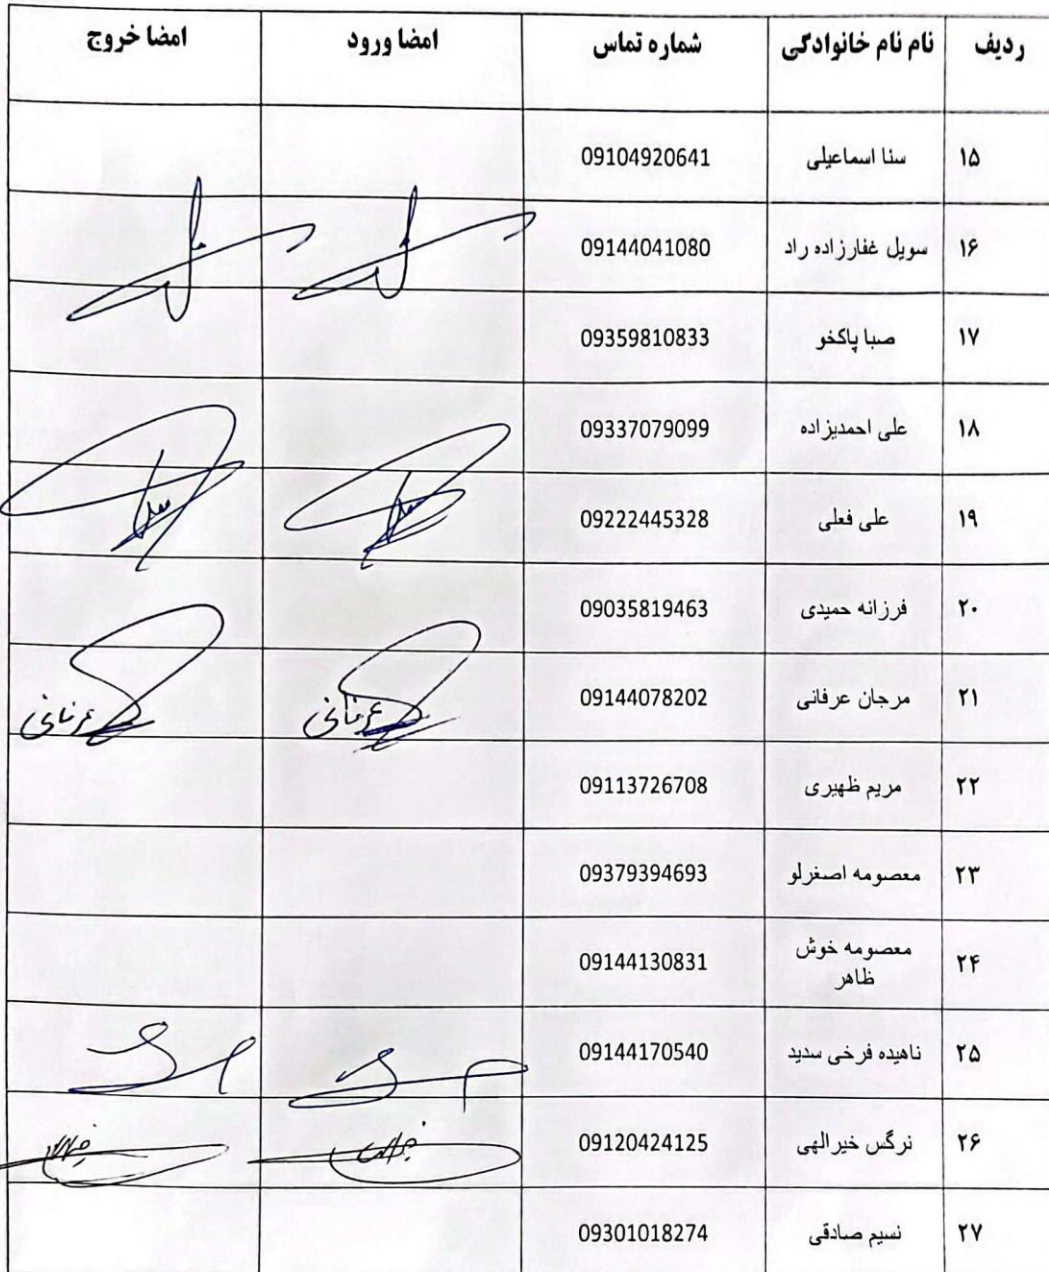 ردیف نام نام خانوادگی شماره تماس امضا ورود امضا خروج
۱۵ سنا اسماعیلی 09104920641
۱۶ سویل غفارزاده راد 09144041080
۱۷ صبا پاکخو 09359810833
۱۸ علی احمدیزاده 09337079099
۱۹ علی فعلی 09222445328
۲۰ فرزانه حمیدی 09035819463
۲۱ مرجان عرفانی 09144078202 عرفانی عرفانی
۲۲ مریم ظهیری 09113726708
۲۳ معصومه اصغرلو 09379394693
۲۴ معصومه خوش ظاهر 09144130831
۲۵ ناهیده فرخی سدید 09144170540
۲۶ نرگس خیرالهی 09120424125
۲۷ نسیم صادقی 09301018274